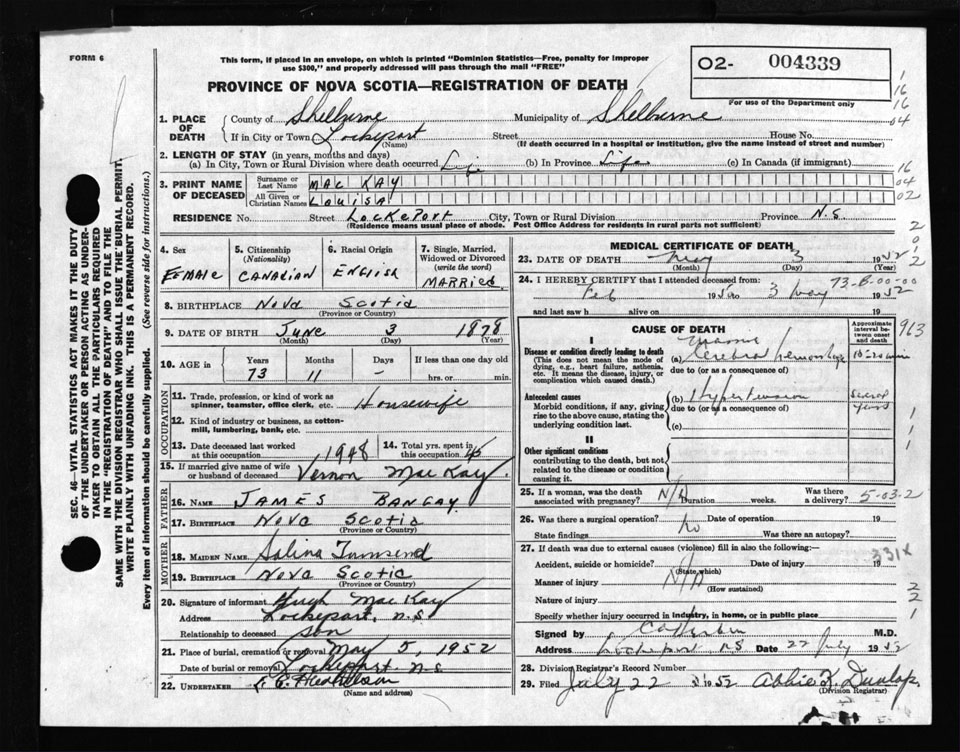 FORM 6
This form, if placed in an envelope, on which is printed "Dominion Statistics—Free, penalty for improper
use $300," and properly addressed will pass through the mail "FREE"
O2- 004339
For use of the Department only
PROVINCE OF NOVA SCOTIA—REGISTRATION OF DEATH
1. PLACE OF DEATH
County of Shelburne Municipality of Shelburne
If in City or Town Lockeport Street House No.
(Name) (If death occurred in a hospital or institution, give the name instead of street and number)
2. LENGTH OF STAY (in years, months and days)
(a) In City, Town or Rural Division where death occurred Life (b) In Province Life (c) In Canada (if immigrant)
3. PRINT NAME OF DECEASED
Surname or Last Name MAC KAY
All Given or Christian Names LOUISA
RESIDENCE No. Street LockePort City, Town or Rural Division Province N.S.
(Residence means usual place of abode. Post Office Address for residents in rural parts not sufficient)
4. Sex FEMALE
5. Citizenship (Nationality) CANADIAN
6. Racial Origin ENGLISH
7. Single, Married, Widowed or Divorced (write the word) MARRIED
8. BIRTHPLACE Nova Scotia
(Province or Country)
9. DATE OF BIRTH June 3 1878
(Month) (Day) (Year)
10. AGE in Years 73 Months 11 Days - If less than one day old hrs. or min.
OCCUPATION
11. Trade, profession, or kind of work as
spinner, teamster, office clerk, etc. Housewife
12. Kind of industry or business, as cotton-
mill, lumbering, bank, etc.
13. Date deceased last worked
at this occupation 1948
14. Total yrs. spent in
this occupation
15. If married give name of wife
or husband of deceased Vernon MacKay
FATHER
16. NAME JAMES BANGAY
17. BIRTHPLACE Nova Scotia
(Province or Country)
MOTHER
18. MAIDEN NAME Salina Townsend
19. BIRTHPLACE Nova Scotia
(Province or Country)
20. Signature of informant Hugh MacKay
Address Lockeport, N.S.
Relationship to deceased son
21. Place of burial, cremation or removal May 5, 1952
Date of burial or removal Lockeport N.S.
22. UNDERTAKER
(Name and address)
MEDICAL CERTIFICATE OF DEATH
23. DATE OF DEATH May 3 1952
(Month) (Day) (Year)
24. I HEREBY CERTIFY that I attended deceased from: 73-B-00-00
Feb to 3 May 1952
and last saw h alive on 19
CAUSE OF DEATH
Approximate interval between onset and death
I
Disease or condition directly leading to death
(This does not mean the mode of
dying, e.g., heart failure, asthenia,
etc. It means the disease, injury, or
complication which caused death.)
(a) Cerebral hemorrhage
due to (or as a consequence of)
Antecedent causes
Morbid conditions, if any, giving
rise to the above cause, stating the
underlying condition last.
(b) Hypertension
due to (or as a consequence of)
(c)
II
Other significant conditions
contributing to the death, but not
related to the disease or condition
causing it.
963
25. If a woman, was the death
associated with pregnancy? N/A Duration weeks. Was there a delivery? 5-03-2
26. Was there a surgical operation? no Date of operation 19
State findings Was there an autopsy?
27. If death was due to external causes (violence) fill in also the following:—
Accident, suicide or homicide? Date of injury 19 331X
(State which)
Manner of injury N/A
(How sustained)
Nature of injury
Specify whether injury occurred in industry, in home, or in public place
Signed by M.D.
Address Lockeport NS Date 22 July 1952
28. Division Registrar's Record Number
29. Filed July 22 1952 Abbie K. Dunlop.
(Division Registrar)
SEC. 46—VITAL STATISTICS ACT MAKES IT THE DUTY
OF THE UNDERTAKER OR PERSON ACTING AS UNDER-
TAKER TO OBTAIN ALL THE PARTICULARS REQUIRED
IN THE "REGISTRATION OF DEATH" AND TO FILE THE
SAME WITH THE DIVISION REGISTRAR WHO SHALL ISSUE THE BURIAL PERMIT.
WRITE PLAINLY WITH UNFADING INK. THIS IS A PERMANENT RECORD.
Every item of information should be carefully supplied. (See reverse side for instructions.)